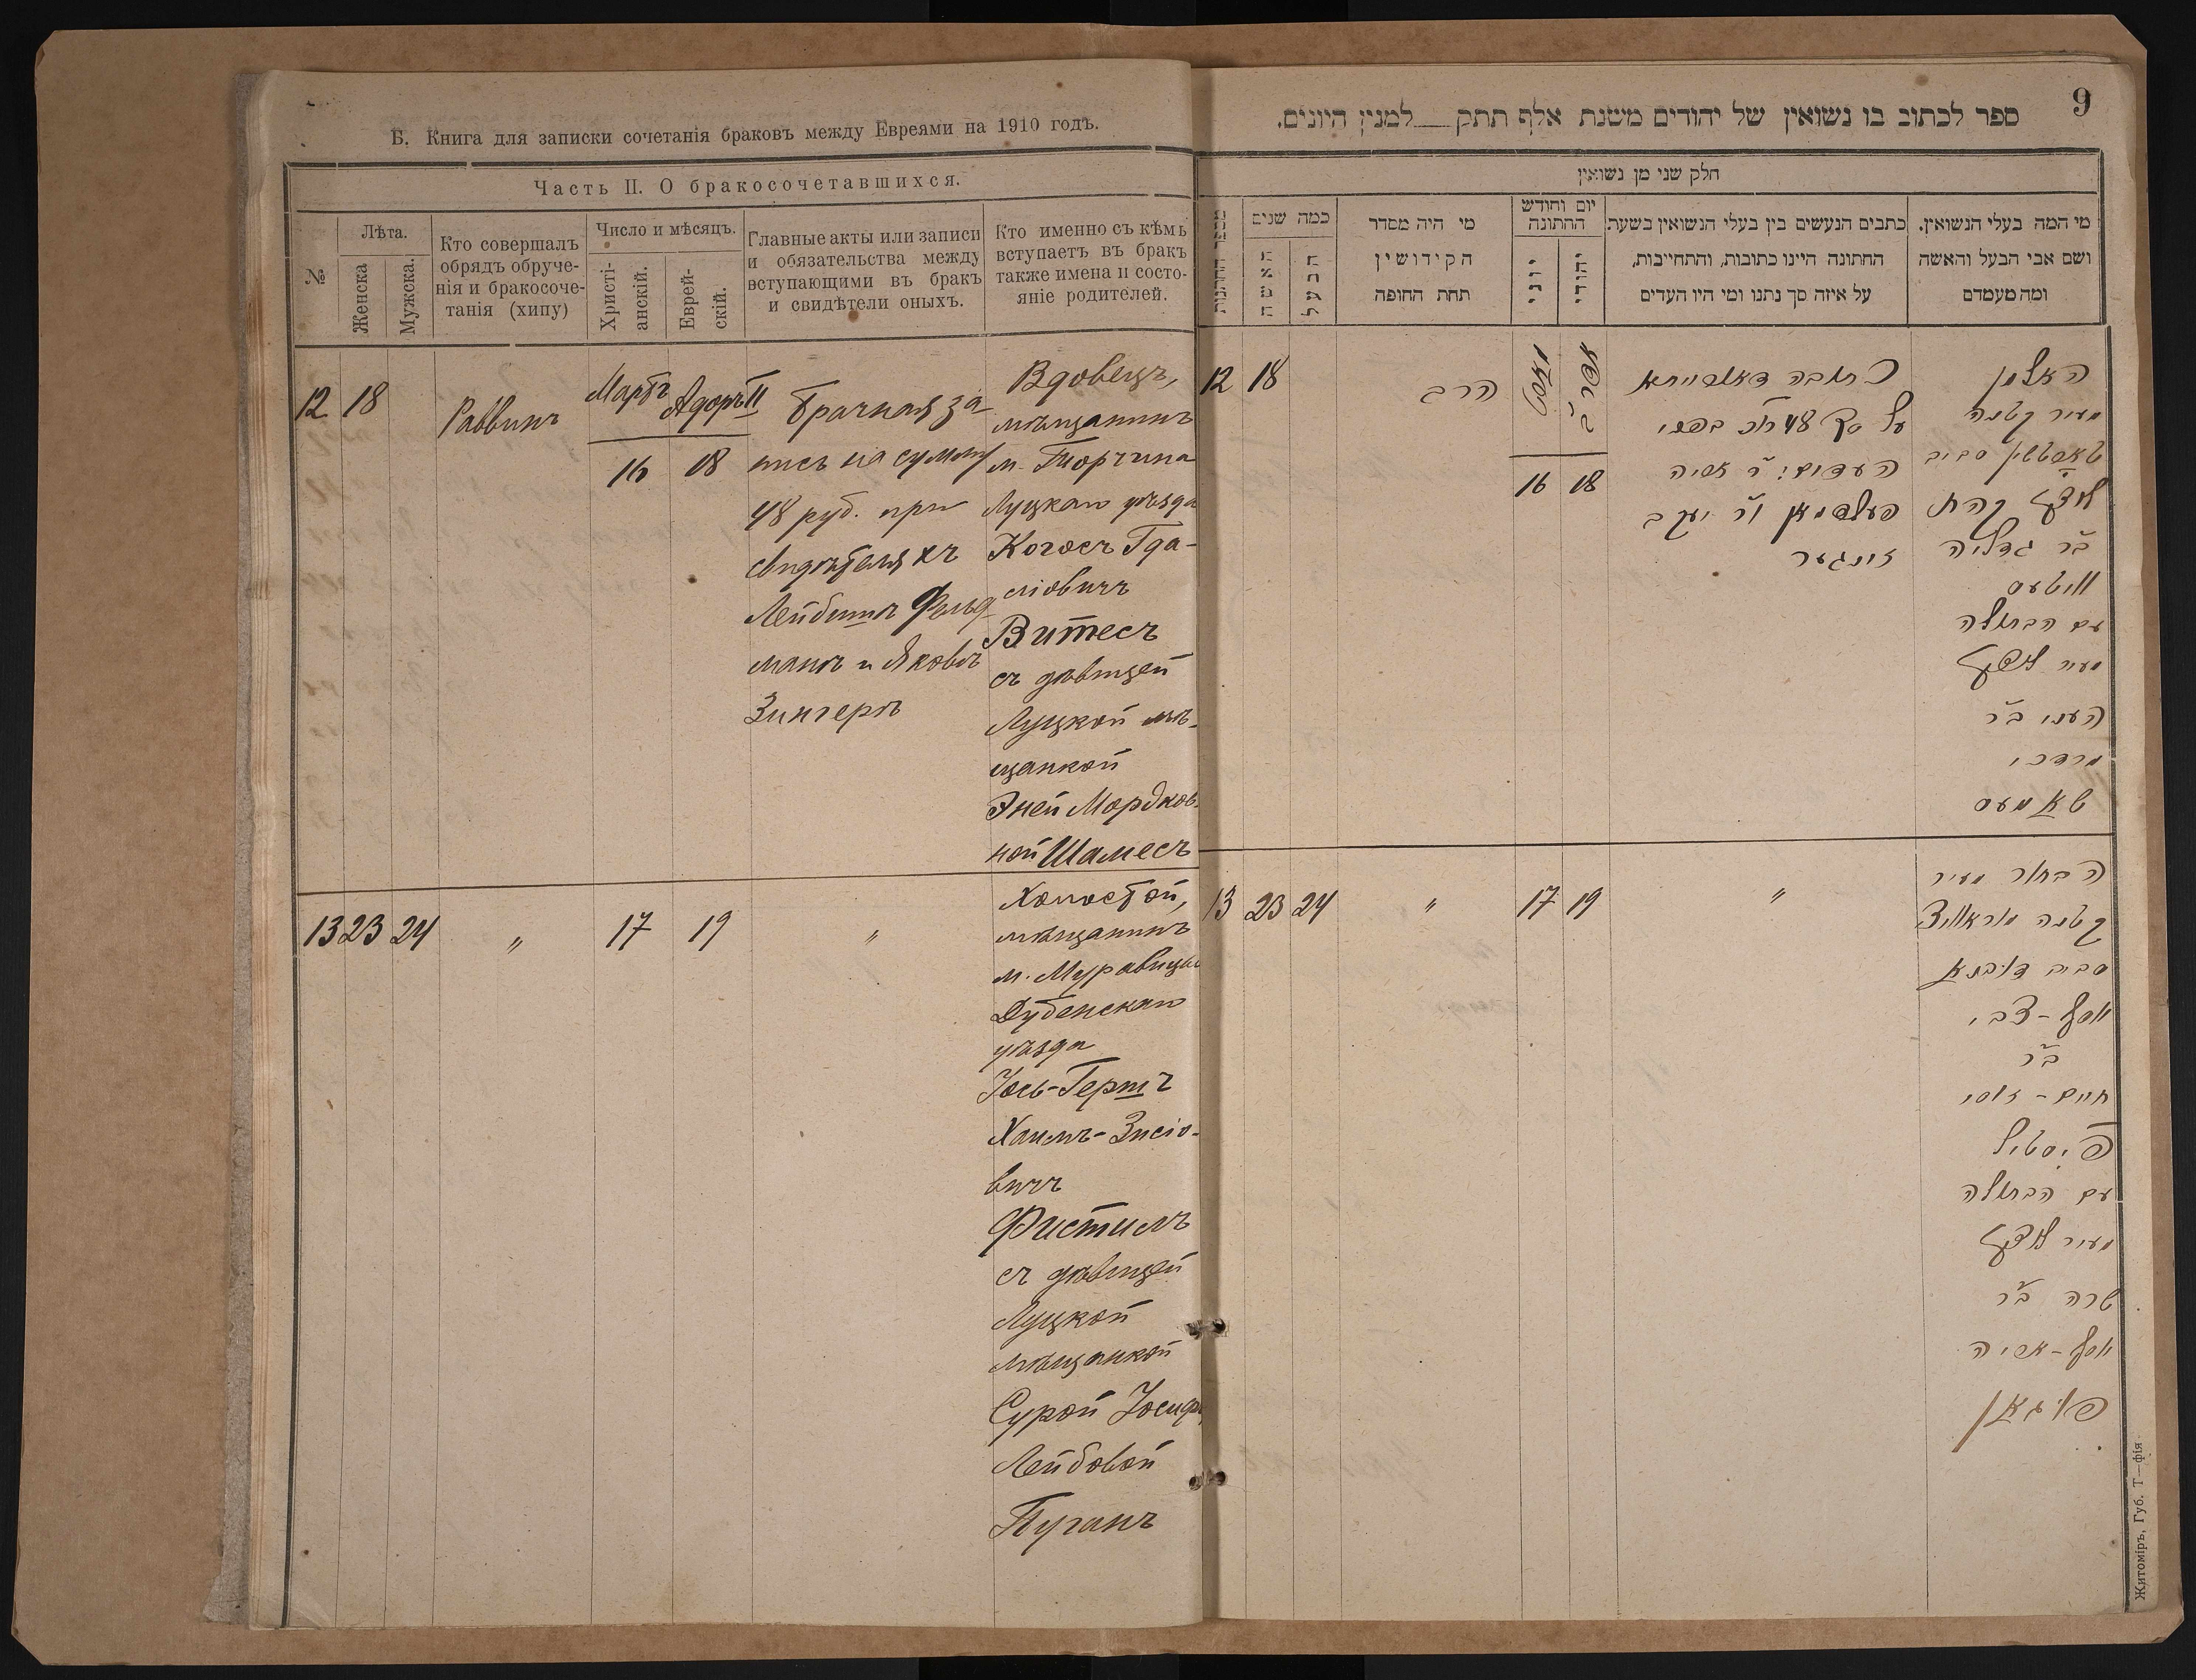 Б. Книга для записки сочетанія браковъ между Евреями на 1910 годъ.
Часть II. О бракосочетавшихся.
№
Лѣта.
Женска
Мужска.
Кто совершалъ
обрядъ обруче-
нія и бракосоче-
танія (хипу)
Число и мѣсяцъ.
Христі-
анскій.
Еврей-
скій.
Главные акты или записи
и обязательства между
вступающими въ бракъ
и свидѣтели оныхъ.
Кто именно съ кѣмъ
вступаетъ въ бракъ
также имена и состо-
яніе родителей.
12 18
Раввинъ
Мартъ Адоръ II
16 18
брачная за-
пись на сумму
48 руб. при
свидѣтеляхъ
Лейбишъ Фельд
манъ и Яковъ
Зингеръ
Вдовецъ,
мѣщанинъ
м. Торчина
Луцкаго уѣзда
Когосъ Гда-
ліовичъ
Витесъ
съ дѣвицей
Луцкой мѣ-
щанкой
Эней Мордков-
ной Шамесъ
13 23 24 " 17 19 "
Холостой,
мѣщанинъ
м. Муравицы
Дубенскаго
уѣзда
Іось-Гершъ
Хаимъ-Зисіо-
вичъ
Фистилъ
съ дѣвицей
Луцкой
мѣщанкой
Сурой Іосиф
Лейбовой
Пуганъ
9
ספר לכתוב בו נשואין של יהודים משנת אלף תתק — למנין היונים.
חלק שני מן נשואין
כמה שנים
האשה
הבעל
מי היה מסדר
הקידושין
תחת החופה
יום וחודש
החתונה
יוני
יהודי
כתבים הנעשים בין בעלי הנשואין בשעת
החתונה היינו כתובות, והתחייבות,
על איזה סך נתנו ומי היו העדים
מי המה בעלי הנשואין.
ושם אבי הבעל והאשה
ומה מעמדם
12 18
הרב
מארט
אדר ב'
16 18
כתובה דאורייתא
על סך 48 רו"כ בפני
העדים: ר' אריה
פעלדמאן ור' יעקב
זינגער
האלמן
מעיר קטנה
טארטשין סביב
לוצק קהת
ב"ר גדליה
וויטעס
עם הבתולה
מעיר לוצק
העני ב"ר
מרדכי
שאמעס
13 23 24 " 17 19 "
הבחור מעיר
קטנה מוראוויץ
סביב דובנא
יוסף-צבי
ב"ר
חיים-זוסי
פיסטיל
עם הבתולה
מעיר לוצק
שרה ב"ר
יוסף-אריה
פוגאן
Житоміръ, Губ. Т—фія